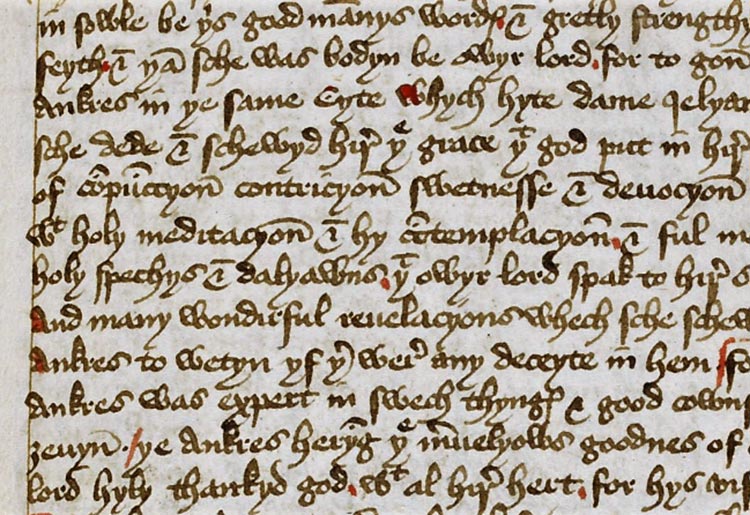 in sowle be yͤs good mānys wordꝭ & gretly strengthe
feyth & yͣ sche was bodyn be owyr lord for to gon̄
ankres in ye same Cyte whych hyte dame Ielyan
sche dede & schewyd hir̛ yͤ grace yͭ god put in hir̛
of cōpūccyon̄ contricyon̄ swetnesse & deuocyon̄
wͭ holy meditacyon̄ & hy cōtemplacyon̄ & ful m
holy spechys & dalyawns yͭ owyr lord spak to hir̛
and many wondirful reuelacyons whech sche schew
ankres to wetyn yf yͬ wer̛ any deceyte in hem fo
ankres was expert in swech thyngꝭ & good cown
ȝeuyn ye ankres heryg̅ yͤ m̛uelyows goodnes of
lord hyly thankyd god wͭ al hir̛ hert for hys vis